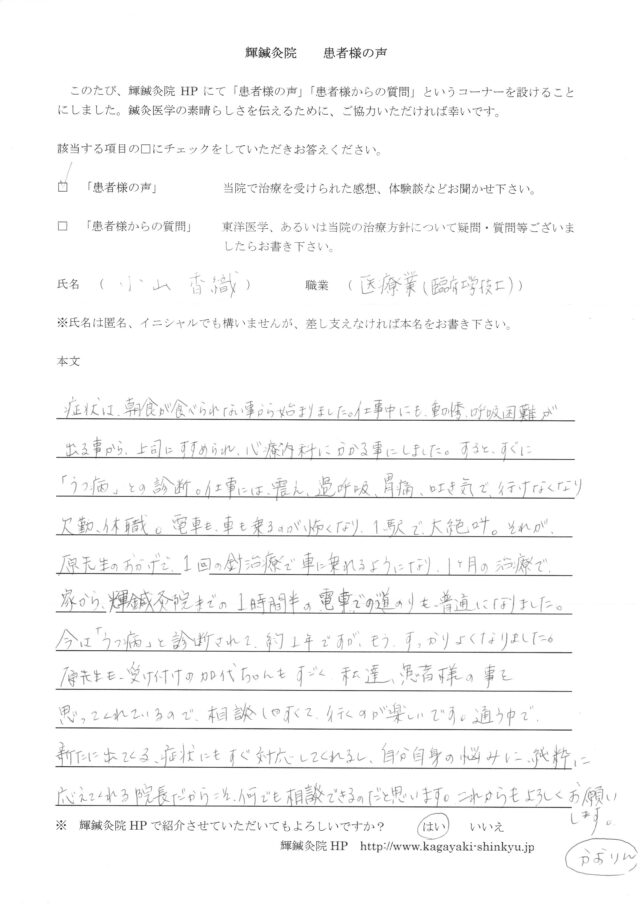 輝鍼灸院　　患者様の声
このたび、輝鍼灸院 HP にて「患者様の声」「患者様からの質問」というコーナーを設けること
にしました。鍼灸医学の素晴らしさを伝えるために、ご協力いただければ幸いです。
該当する項目の□にチェックをしていただきお答えください。
□　「患者様の声」　　　　当院で治療を受けられた感想、体験談などお聞かせ下さい。
□　「患者様からの質問」　　東洋医学、あるいは当院の治療方針について疑問・質問等ございま
したらお書き下さい。
氏名　（　小山　香織　）　　　職業　（　医療業（臨床工学技士））
※氏名は匿名、イニシャルでも構いませんが、差し支えなければ本名をお書き下さい。
本文
症状は、朝食が食べられない事から始まりました。仕事中にも、動悸、呼吸困難が
出る事から、上司にすすめられ、心療内科にかかる事にしました。すると、すぐに
「うつ病」との診断。仕事には、震え、過呼吸、胃痛、吐き気で、行けなくなり
欠勤、休職。電車も、車も乗るのが怖くなり、1駅で、大絶叫。それが、
原先生のおかげで、1回の針治療で車に乗れるようになり、1ヶ月の治療で、
家から、輝鍼灸院までの1時間半の電車での道のりも、普通になりました。
今は「うつ病」と診断されて、約1年ですが、もう、すっかりよくなりました。
原先生も、受け付けの加代ちゃんも、すごく、私達、患者様の事を
思ってくれているので、相談しやすくて、行くのが楽しいです。通う中で、
新たに出てくる、症状にもすぐ対応してくれるし、自分自身の悩みに、純粋に
応えてくれる院長だからこそ、何でも相談できるのだと思います。これからもよろしくお願い
します。
※　輝鍼灸院 HP で紹介させていただいてもよろしいですか？　　はい　　いいえ
輝鍼灸院 HP　http://www.kagayaki-shinkyu.jp
かおりん